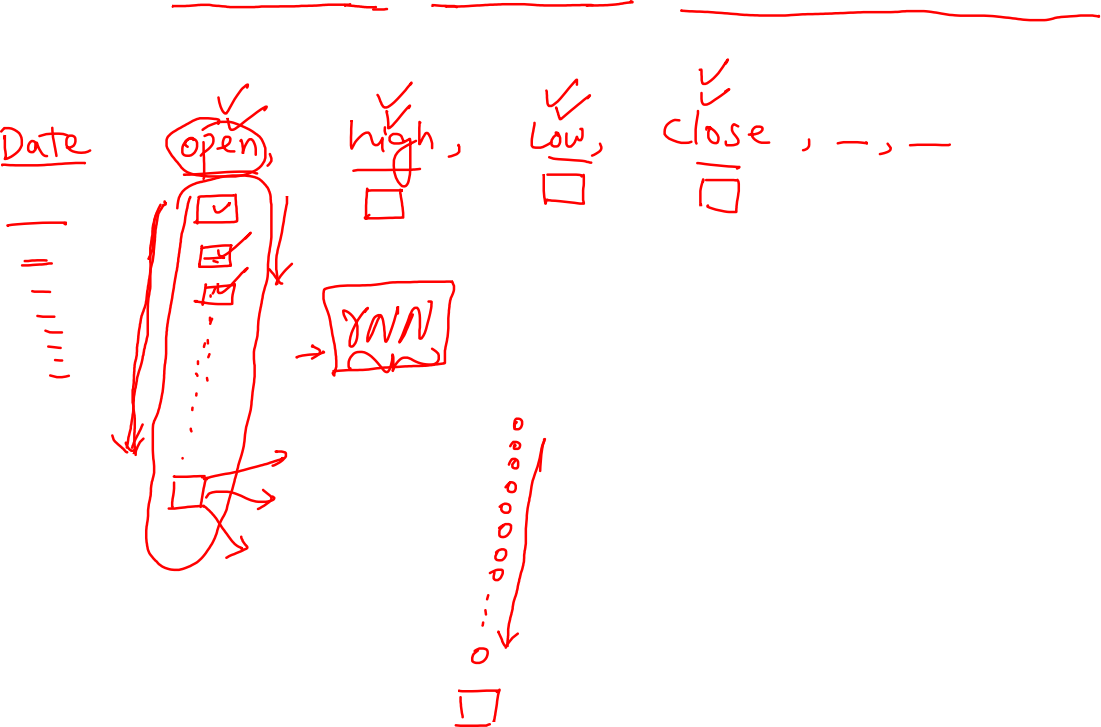 Date open, high, Low, Close, —, —
rNN